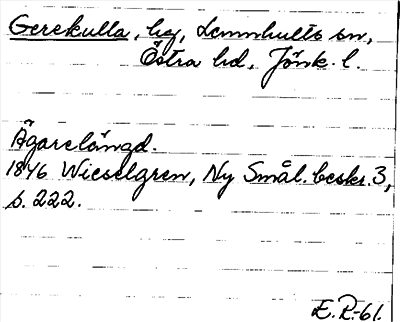 Gerekulla, hg, Lemnhults sn,
Östra hd, Jönk. l.
Ägarelängd.
1846 Wieselgren, Ny Smål. beskr. 3,
s. 222.
E.R.-61.